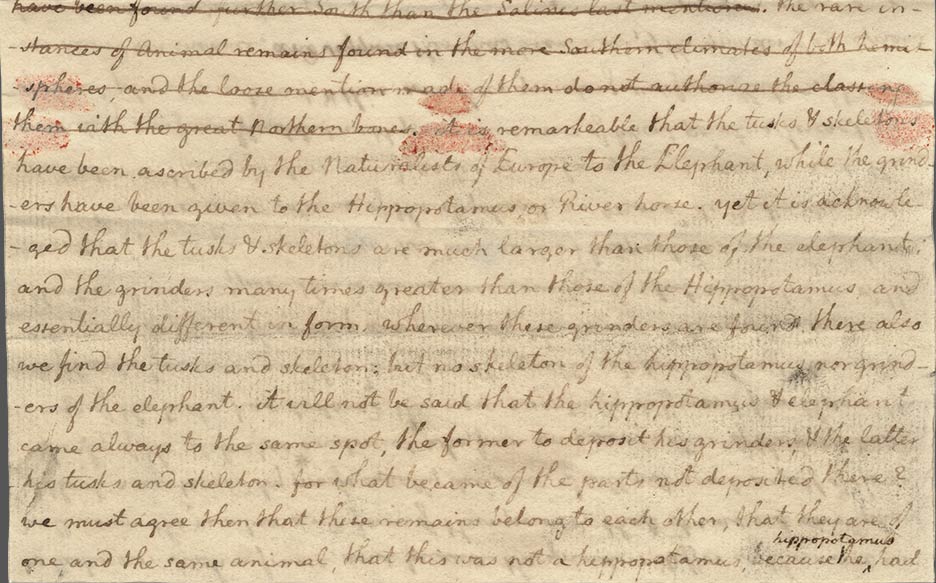 have been found further South than the Salines last mentioned. the rare in-
-stances of animal remains found in the more Southern climates of both hemi-
-spheres, and the loose mention made of them do not authorize the classing
them with the great Northern bones. it is remarkeable that the tusks & skeletons
have been ascribed by the Naturalists of Europe to the Elephant, while the grind-
ers have been given to the Hippopotamus, or River horse. yet it is acknowle-
-ged that the tusks & skeletons are much larger than those of the elephant;
and the grinders many times greater than those of the Hippopotamus, and
essentially different in form. wherever these grinders are found, there also
we find the tusks and skeleton: but no skeleton of the hippopotamus nor grind-
-ers of the elephant. it will not be said that the hippopotamus & elephant
came always to the same spot, the former to deposit his grinders, & the latter
his tusks and skeleton. for what became of the parts not deposited there?
we must agree then that these remains belong to each other, that they are of
hippopotamus
one and the same animal, that this was not a hippopotamus, because the ‸ had